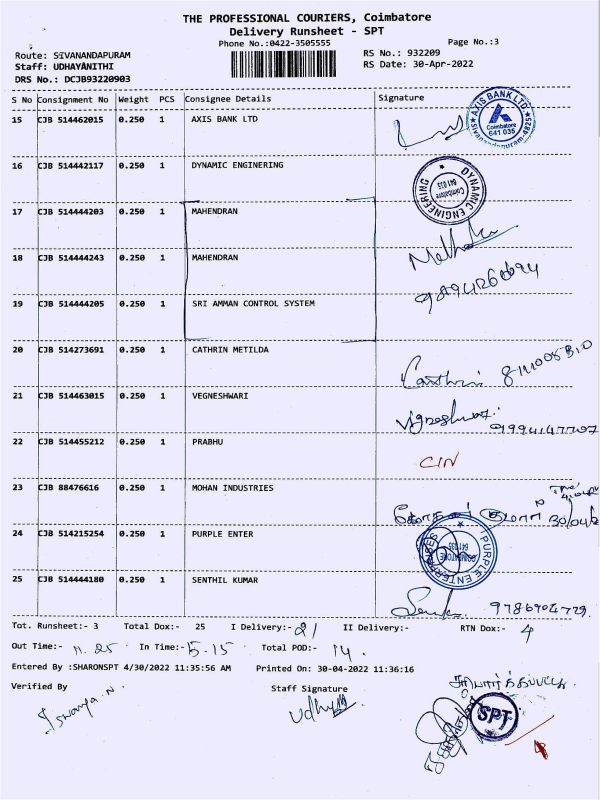 THE PROFESSIONAL COURIERS, Coimbatore
Delivery Runsheet - SPT
Phone No.:0422-3505555
Page No.:3
Route: SIVANANDAPURAM
RS No.: 932209
Staff: UDHAYANITHI
RS Date: 30-Apr-2022
DRS No.: DCJB93220903
S No Consignment No Weight PCS Consignee Details Signature
15 CJB 514462015 0.250 1 AXIS BANK LTD
AXIS BANK LTD
Coimbatore
641 035
16 CJB 514442117 0.250 1 DYNAMIC ENGINERING
DYNAMIC ENGINEERING
Coimbatore
641 035
17 CJB 514444203 0.250 1 MAHENDRAN
18 CJB 514444243 0.250 1 MAHENDRAN
19 CJB 514444205 0.250 1 SRI AMMAN CONTROL SYSTEM
20 CJB 514273691 0.250 1 CATHRIN METILDA
21 CJB 514463015 0.250 1 VEGNESHWARI
Vigneshwari
9994147707
22 CJB 514455212 0.250 1 PRABHU
CIN
23 CJB 88476616 0.250 1 MOHAN INDUSTRIES
24 CJB 514215254 0.250 1 PURPLE ENTER
PURPLE ENTERPRISES
COIMBATORE
641 035
25 CJB 514444180 0.250 1 SENTHIL KUMAR
Tot. Runsheet:- 3 Total Dox:- 25 I Delivery:- 21 II Delivery:- RTN Dox:- 4
Out Time:- 11.25 In Time:- 5.15 Total POD:- 14.
Entered By :SHARONSPT 4/30/2022 11:35:56 AM Printed On: 30-04-2022 11:36:16
Verified By
Staff Signature
SPT